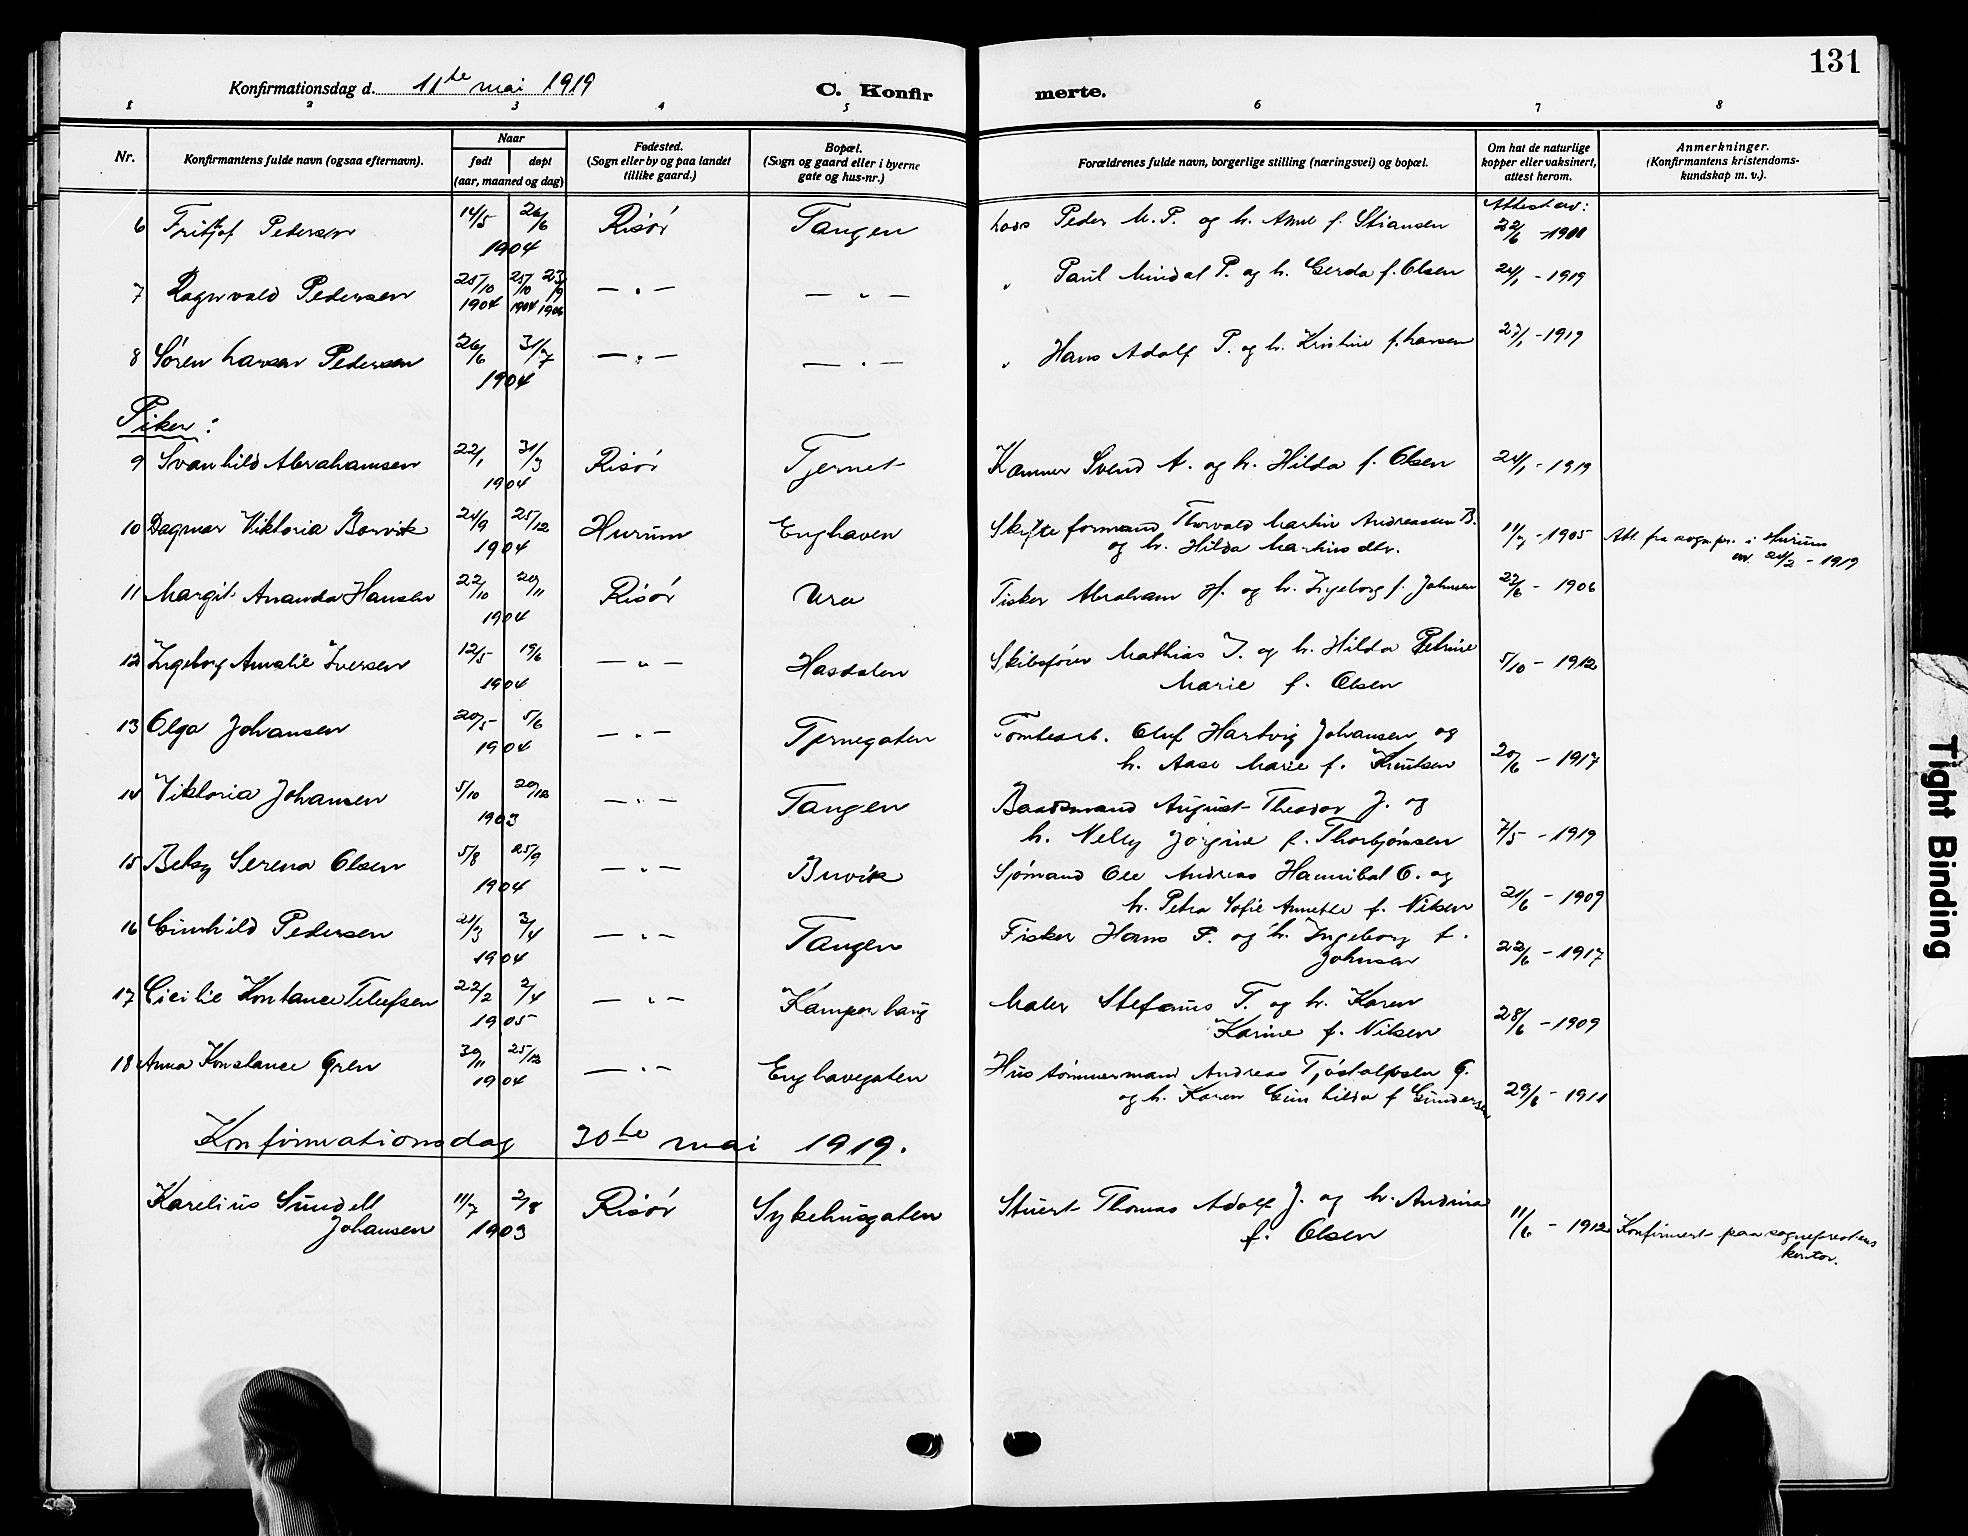 131
Konfirmationsdag d. 11te mai 1919
C. Konfir merte.
1 2 3 4 5 6 7 8
Nr.
Konfirmantens fulde navn (ogsaa efternavn).
Naar
født døpt
(aar, maaned og dag)
Fødested.
(Sogn eller by og paa landet
tillike gaard.)
Bopæl.
(Sogn og gaard eller i byerne
gate og hus-nr.)
Forældrenes fulde navn, borgerlige stilling (næringsvei) og bopæl.
Om hat de naturlige
kopper eller vaksinert,
attest herom.
Anmerkninger.
(Konfirmantens kristendoms-
kundskap m. v.).
Attest av:
6 Fritjof Pedersen 14/5 26/6 Risør Tangen Los Peder M. P. og h. f. Stiansen 22/6
1904
7 Ragnvald Pedersen 25/10 25/10 23/9 — " — — " — " Paul Mindal P. og h. Gerda f. Olsen 24/1 - 1919
1904 1904 1906
8 Søren Larsen Pedersen 26/6 31/7 — " — — " — " Hans Adolf P. og h. Kristine f. Larsen 27/1 - 1919
1904
Piker:
9 Svanhild Abrahamsen 22/1 31/3 Risør Tjernet Kæmner Svend A. og h. Hilda f. Olsen 24/1 - 1919
1904
10 Dagmar Viktoria Borvik 24/9 25/12 Hurum Enghaven Skifteformand Thorvald Martin Andreassen B. 11/7 - 1905 Att. fra sogn.pr. i Hurum
1904 og h. Hilda Martinsdtr. av 24/2 - 1919
11 Margit Amanda Hansen 22/10 20/11 Risør Ura Fisker Abraham H. og h. Ingeborg f. Johnsen 22/6 - 1906
1904
12 Ingeborg Amalie Iversen 12/5 19/6 — " — Hasdalen Skibsfører Mathias I. og h. Hilda Petrine 5/10 - 1912
1904 Marie f. Olsen
13 Olga Johansen 20/5 5/6 — " — Tjernegaten Tomtearb. Oluf Hartvig Johansen og
1904 h. Aase Marie f. Knutsen 20/6 - 1917
14 Viktoria Johansen 5/10 20/12 — " — Tangen Baadsmand August Theodor J. og
1903 h. Nelly Jørgine f. Thorbjørnsen 7/5 - 1919
15 Betsy Serena Olsen 5/8 25/9 — " — Buvik Sjømand Ole Andreas Hannibal O. og
1904 h. Petra Sofie Annette f. Nilsen 21/6 - 1909
16 Gunhild Pedersen 21/3 3/4 — " — Tangen Fisker Hans P. og h. Ingeborg f.
1904 Johnsen 22/6 - 1917
17 Cicilie Konstance Tellefsen 22/2 2/4 — " — Kamperhaug Maler Stefanus T. og h. Karen
1905 Karine f. Nilsen 28/6 - 1909
18 Anna Konstance Gren 30/11 25/12 — " — Enghavegaten Hustømmermand Andreas Tjøstolfsen G.
1904 og h. Karen Gunhilda f Gundersen 29/6 - 1911
Konfirmationsdag 30te mai 1919.
Karelius Sundell 11/7 2/8 Risør Sykehusgaten Stuert Thomas Adolf J. og h. Andrina
Johansen 1903 f. Olsen 11/6 - 1912 Konfirmert paa sogneprestens
kontor.
Tight Binding